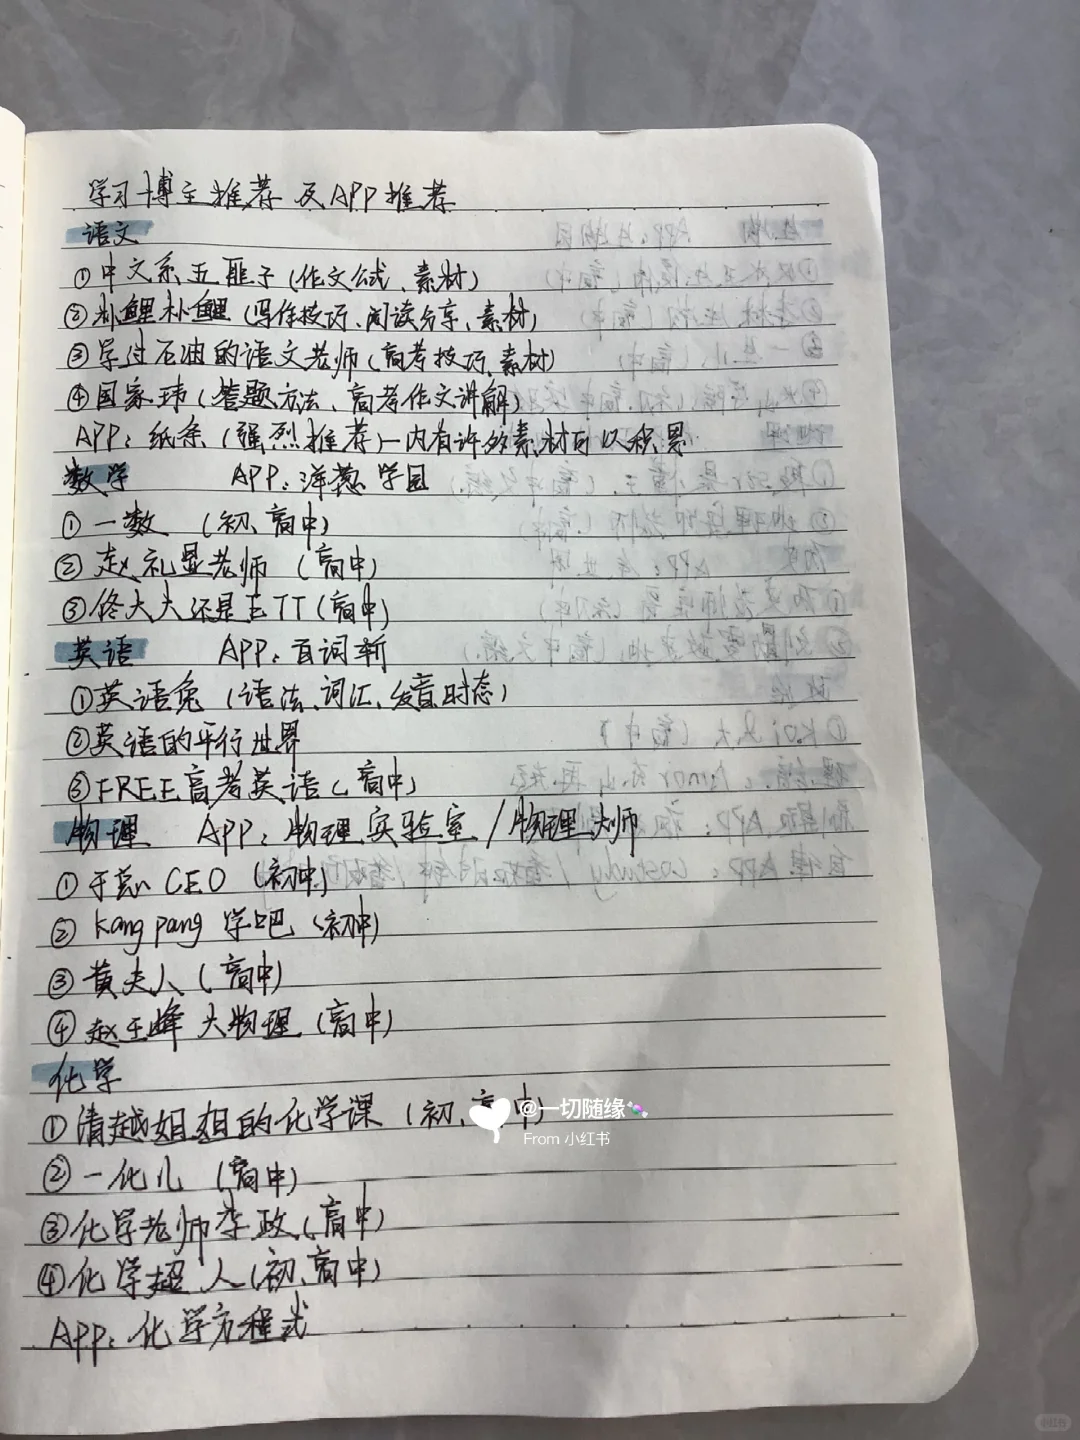 学习博主推荐及APP推荐
语文
①中文系王耶子(作文公式、素材)
②朴鲤朴鲤(写作技巧、阅读分享、素材)
③学过石油的语文老师(高考技巧、素材)
④国家玮(答题方法、高考作文讲解)
APP:纸条(强烈推荐)一内有许多素材可以积累
数学 APP:洋葱学园
①一数 (初、高中)
②赵礼显老师 (高中)
③佟大大还是王TT(高中)
英语 APP:百词斩
①英语兔(语法、词汇、发音、时态)
②英语的平行世界
③FREE高考英语(高中)
物理 APP:物理实验室/物理大师
① CEO(初中)
②kang pang 学吧(初中)
③黄夫人(高中)
④赵玉峰大物理(高中)
化学
①清越姐姐的化学课(初、高中)
②一化儿 (高中)
③化学老师李政(高中)
④化学超人(初、高中)
App:化学方程式
@一切随缘🍬
From 小红书
小红书